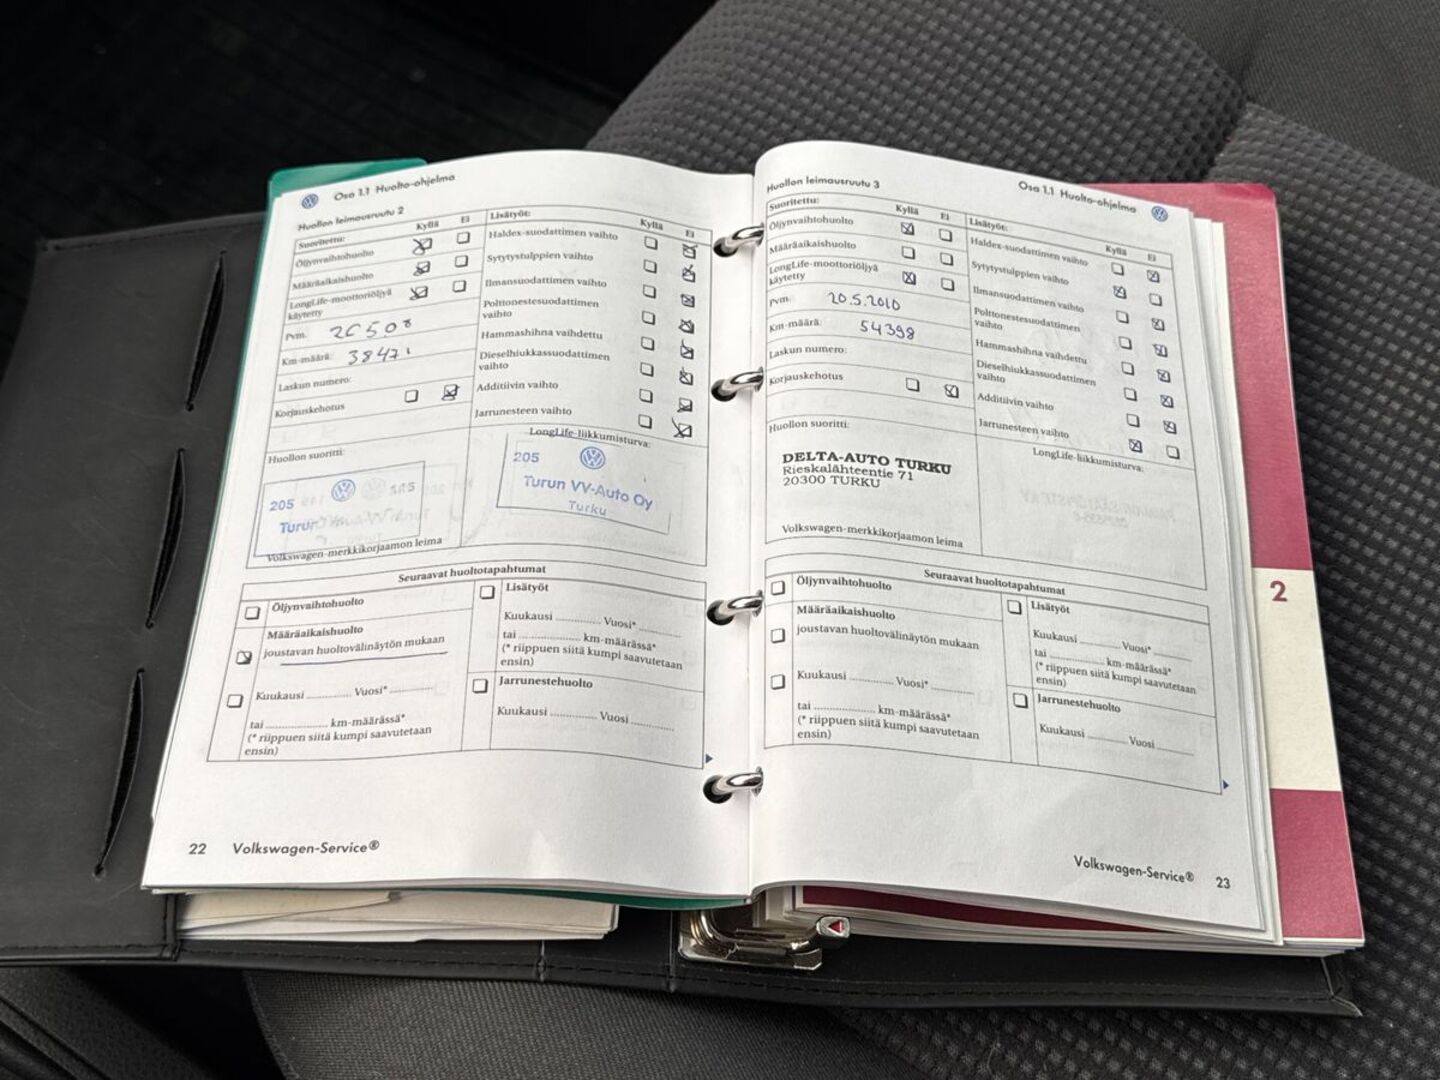 Osa 1.1 Huolto-ohjelma
Huollon leimausruutu 2
Suoritettu: Kyllä Ei
Öljynvaihtohuolto
Määräaikaishuolto
LongLife-moottoriöljyä
käytetty
Pvm.
Km-määrä: 38471
Laskun numero:
Korjauskehotus
Lisätyöt: Kyllä Ei
Haldex-suodattimen vaihto
Sytytystulppien vaihto
Ilmansuodattimen vaihto
Polttonestesuodattimen
vaihto
Hammashihna vaihdettu
Dieselhiukkassuodattimen
vaihto
Additiivin vaihto
Jarrunesteen vaihto
Huollon suoritti:
205
Turun
Volkswagen-merkkikorjaamon leima
LongLife-liikkumisturva:
205
Turun VV-Auto Oy
Turku
Seuraavat huoltotapahtumat
Öljynvaihtohuolto
Määräaikaishuolto
joustavan huoltovälinäytön mukaan
Kuukausi ............. Vuosi* .............
tai .................. km-määrässä*
(* riippuen siitä kumpi saavutetaan
ensin)
Lisätyöt
Kuukausi ............. Vuosi* .............
tai .................. km-määrässä*
(* riippuen siitä kumpi saavutetaan
ensin)
Jarrunestehuolto
Kuukausi ............. Vuosi .............
22 Volkswagen-Service®
Osa 1.1 Huolto-ohjelma
Huollon leimausruutu 3
Suoritettu: Kyllä Ei
Öljynvaihtohuolto
Määräaikaishuolto
LongLife-moottoriöljyä
käytetty
Pvm. 20.5.2010
Km-määrä: 54398
Laskun numero:
Korjauskehotus
Lisätyöt: Kyllä Ei
Haldex-suodattimen vaihto
Sytytystulppien vaihto
Ilmansuodattimen vaihto
Polttonestesuodattimen
vaihto
Hammashihna vaihdettu
Dieselhiukkassuodattimen
vaihto
Additiivin vaihto
Jarrunesteen vaihto
Huollon suoritti:
DELTA-AUTO TURKU
Rieskalähteentie 71
20300 TURKU
Volkswagen-merkkikorjaamon leima
LongLife-liikkumisturva:
Seuraavat huoltotapahtumat
Öljynvaihtohuolto
Määräaikaishuolto
joustavan huoltovälinäytön mukaan
Kuukausi ............. Vuosi* .............
tai .................. km-määrässä*
(* riippuen siitä kumpi saavutetaan
ensin)
Lisätyöt
Kuukausi ............. Vuosi* .............
tai .................. km-määrässä*
(* riippuen siitä kumpi saavutetaan
ensin)
Jarrunestehuolto
Kuukausi ............. Vuosi .............
Volkswagen-Service® 23
2